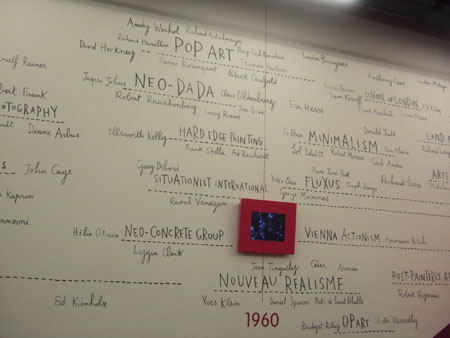 Andy Warhol Richard Artschwager
Richard Hamilton POP ART Roy Lichtenstein Louise Bourgeois
David Hockney James Rosenquist Patrick Caulfield Anthony Caro
Arnulf Rainer
Jasper Johns NEO-DADA Claes Oldenburg Leon Kossoff SCHOOL OF LONDON
Robert Frank Robert Rauschenberg Jim Dine Larry Rivers Eva Hesse
PHOTOGRAPHY
Diane Arbus Ellsworth Kelly HARD EDGE PAINTING Donald Judd LAND
Frank Stella Ad Reinhardt MINIMALISM
Sol LeWitt Robert Morris Carl Andre
John Cage Guy Debord Nam June Paik ARTE
SITUATIONIST INTERNATIONAL Yoko Ono FLUXUS Joseph Beuys Richard Serra
Kaprow Raoul Vaneigem George Maciunas
Manzoni
Hélio Oiticica NEO-CONCRETE GROUP VIENNA ACTIONISM Hermann Nitsch
Lygia Clark
Jean Tinguely César Arman
NOUVEAU REALISME POST-PAINTERLY A
Ed Kienholz Yves Klein Daniel Spoerri Niki de Saint Phalle Robert Ryman
1960 Bridget Riley OP ART Victor Vasarely